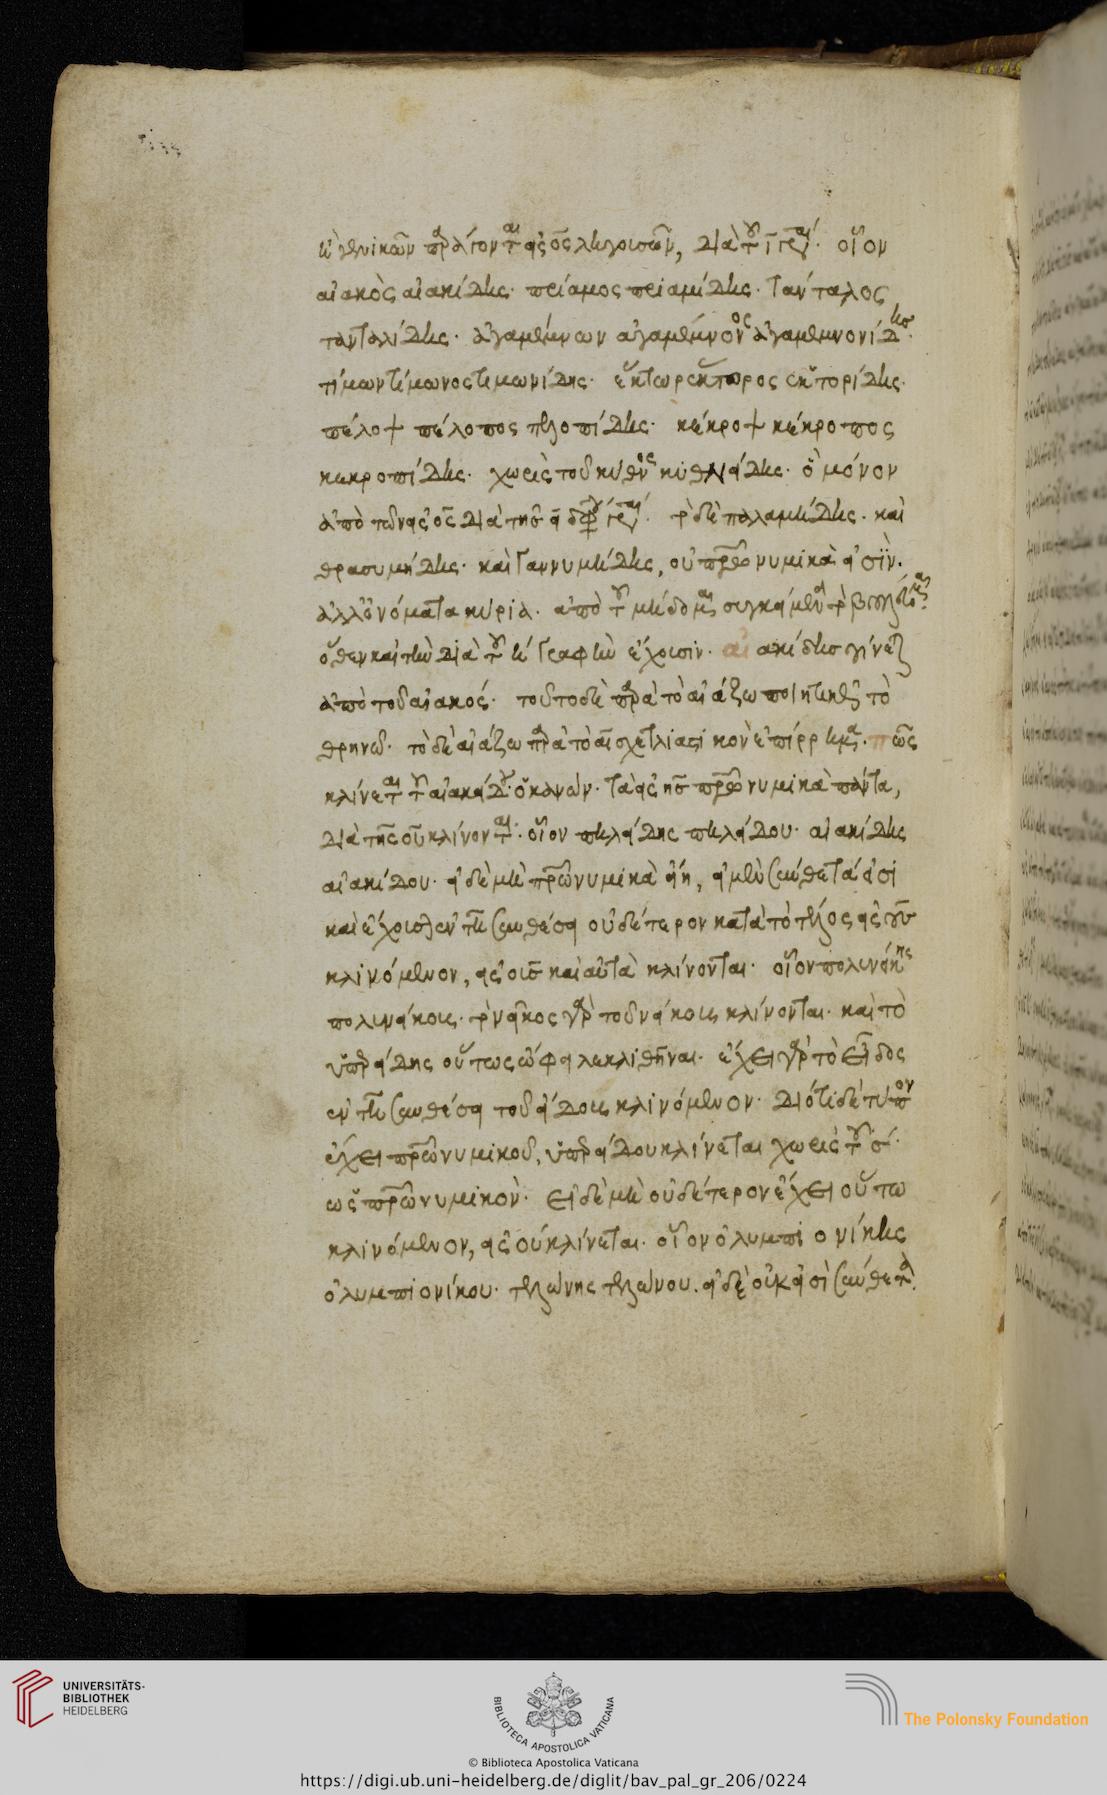 ἢ γενικῶν παράγονται εἰς ος ληγουσῶν, διὰ τοῦ ῑ γράφεται· οἷον
αἰακὸς αἰακίδης· πρίαμος πριαμίδης· τάνταλος
τανταλίδης· ἀγαμέμνων ἀγαμέμνονος ἀγαμεμνονίδης·
τίμων τίμωνος τιμωνίδης· ἕκτωρ ἕκτορος ἑκτορίδης·
πέλοψ πέλοπος πελοπίδης· κέκροψ κέκροπος
κεκροπίδης· χωρὶς τοῦ πηλείδης· ὃ μόνον
ἀπὸ τῶν εἰς ος διὰ τῆς ει διφθόγγου γράφεται· τὸ δὲ παλαμήδης· καὶ
θρασυμήδης· καὶ γαννυμήδης, οὐ πατρωνυμικὰ εἰσὶν·
ἀλλ' ὀνόματα κύρια· ἀπὸ τοῦ μήδομαι συγκείμενα τὸ βουλεύομαι·
ὅθεν καὶ τὴν διὰ τοῦ η γραφὴν ἔχουσιν· αἰακίδης γίνεται
ἀπὸ τοῦ αἰακός· τοῦτο δὲ παρὰ τὸ αἰάζω ποιητικῶς τὸ
θρηνῶ· τὸ δὲ αἰάζω παρὰ τὸ αἲ σχετλιαστικὸν ἐπίρρημα· πῶς
κλίνεται τοῦ αἰακίδου· ὁ κανών· τὰ εἰς ης πατρωνυμικὰ πάντα,
διὰ τῆς ου κλίνονται· οἷον πηλείδης πηλείδου· αἰακίδης
αἰακίδου· εἰ δὲ μὴ πατρωνυμικὰ εἴη, εἰ μὲν σύνθετά εἰσι
καὶ ἔχουσιν ἐν τῇ συνθέσει οὐδέτερον κατὰ τὸ τέλος εἰς ους
κλινόμενον, εἰς ους καὶ αὐτὰ κλίνονται· οἷον πολυνείκης
πολυνείκους· τὸ νεῖκος γὰρ τοῦ νείκους κλίνονται· καὶ τὸ
εὐρείδης οὕτως ὤφειλε κλιθῆναι· ἔχει γὰρ τὸ εἶδος
ἐν τῇ συνθέσει τοῦ εἴδους κλινόμενον· διότι δὲ τύπον
ἔχει πατρωνυμικοῦ, εὐρείδου κλίνεται χωρὶς τοῦ σ·
ὡς πατρωνυμικόν· εἰ δὲ μὴ οὐδέτερον ἔχει οὕτω
κλινόμενον, εἰς ου κλίνεται· οἷον ὀλυμπιονίκης
ὀλυμπιονίκου· τελώνης τελώνου. εἰ δὲ οὐκ εἰσὶ σύνθετα
UNIVERSITÄTS-
BIBLIOTHEK
HEIDELBERG
BIBLIOTECA APOSTOLICA VATICANA
The Polonsky Foundation
© Biblioteca Apostolica Vaticana
https://digi.ub.uni-heidelberg.de/diglit/bav_pal_gr_206/0224